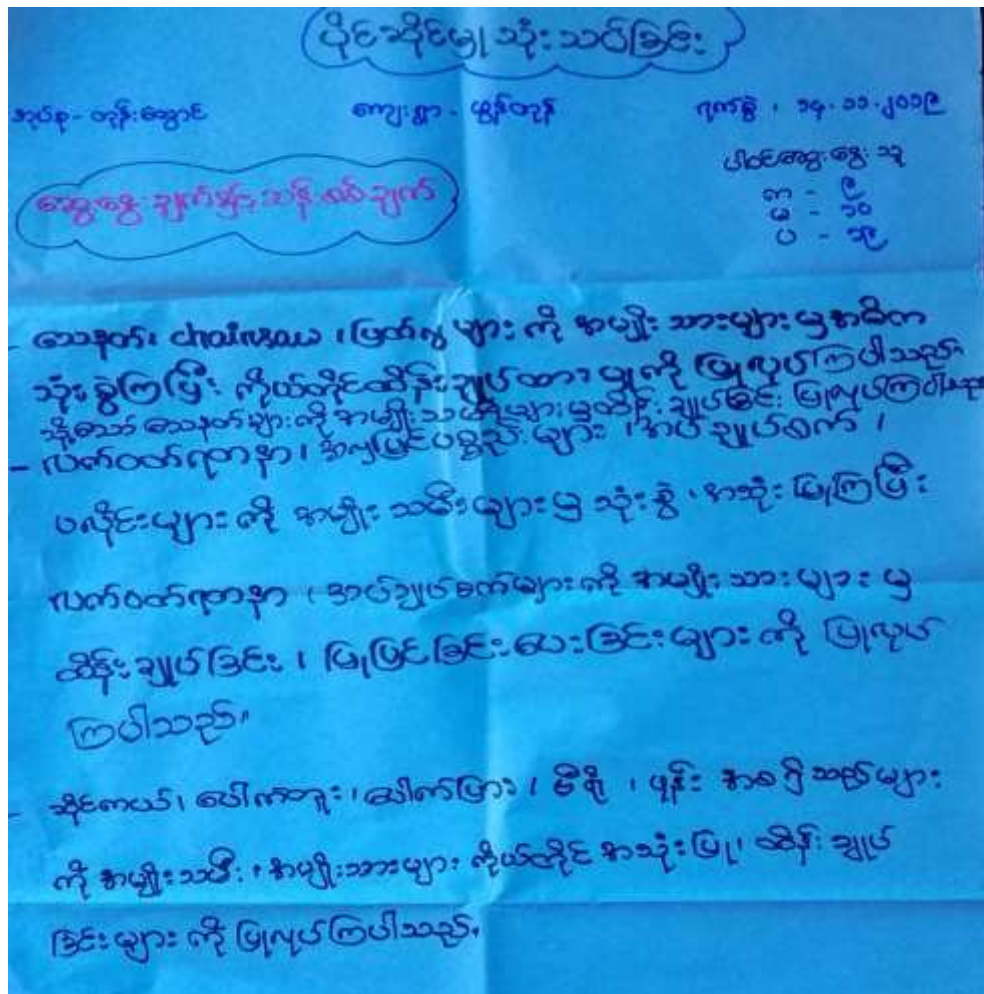 ပိုင်ဆိုင်မှုသုံးသပ်ခြင်း
အုပ်စု - တုန်းအောင် ကျေးရွာ - ယွန်တုန် ရက်စွဲ ၊ ၁၄.၁၁.၂၀၁၉
ပါဝင်ဆွေးနွေးသူ
က - ၉
မ - ၁၀
ပ - ၁၉
ဆွေးနွေးချက်နှင့်သန်းစစ်ချက်
- သေနတ်၊ chainsaw ၊ မြက်ရှ များ ကို အမျိုးသားများမှအဓိက
သုံးစွဲကြပြီး ကိုယ်တိုင်ထိန်းချုပ်ထားမှုကို ပြုလုပ်ကြပါသည်။
သို့သော် သေနတ်များကို အမျိုးသမီးများမှထိန်းချုပ်ခြင်း ပြုလုပ်ကြပါသည်
- လက်ဝတ်ရတနာ၊ အလှပြင်ပစ္စည်းများ ၊အပ်ချုပ်စက် ၊
ပလိုင်းများကို အမျိုးသမီးများမှ သုံးစွဲ ၊အသုံးပြုကြပြီး
လက်ဝတ်ရတနာ ၊ အပ်ချုပ်စက်များကို အမျိုးသားများ မှ
ထိန်းချုပ်ခြင်း ၊ ပြုပြင်ခြင်းပေးခြင်းများ ကို ပြုလုပ်
ကြပါသည်။
- ဆိုင်ကယ်၊ ပေါက်တူး၊ပေါက်ပြား ၊ မီဖို ၊ ဖုန်း အစရှိသည်များ
ကို အမျိုးသမီး ၊အမျိုးသားများ ကိုယ်တိုင် အသုံးပြု၊ ထိန်းချုပ်
ခြင်းများ ကို ပြုလုပ်ကြပါသည်။